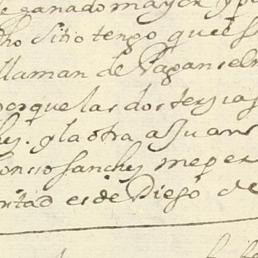 ganado mayor y p
ho sitio tengo que es
llaman de Pagans el
porque las dos tersias
hey. y la otra a Juan s
onso sanches me per
ritad es de Diego de